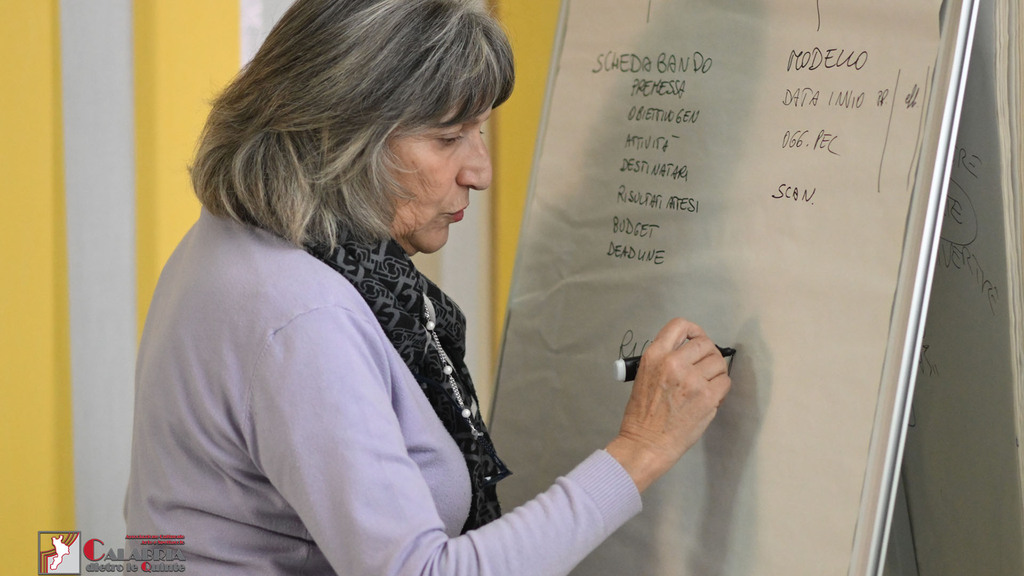 SCHEDA BANDO
PREMESSA
OBIETTIVO GEN
ATTIVITÀ
DESTINATARI
RISULTATI ATESI
BUDGET
DEADLINE
MODELLO
DATA INVIO
OGG. PEC
SCAN.
CALABRIA
dietro le Quinte